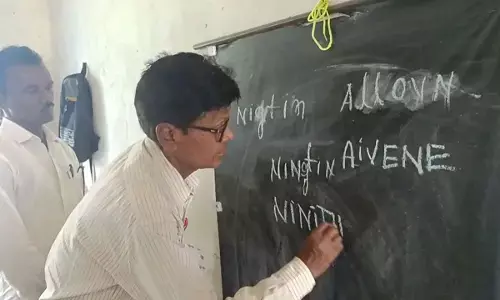 Nigtin Alloyn
Ningtin Aivene
NINiTI